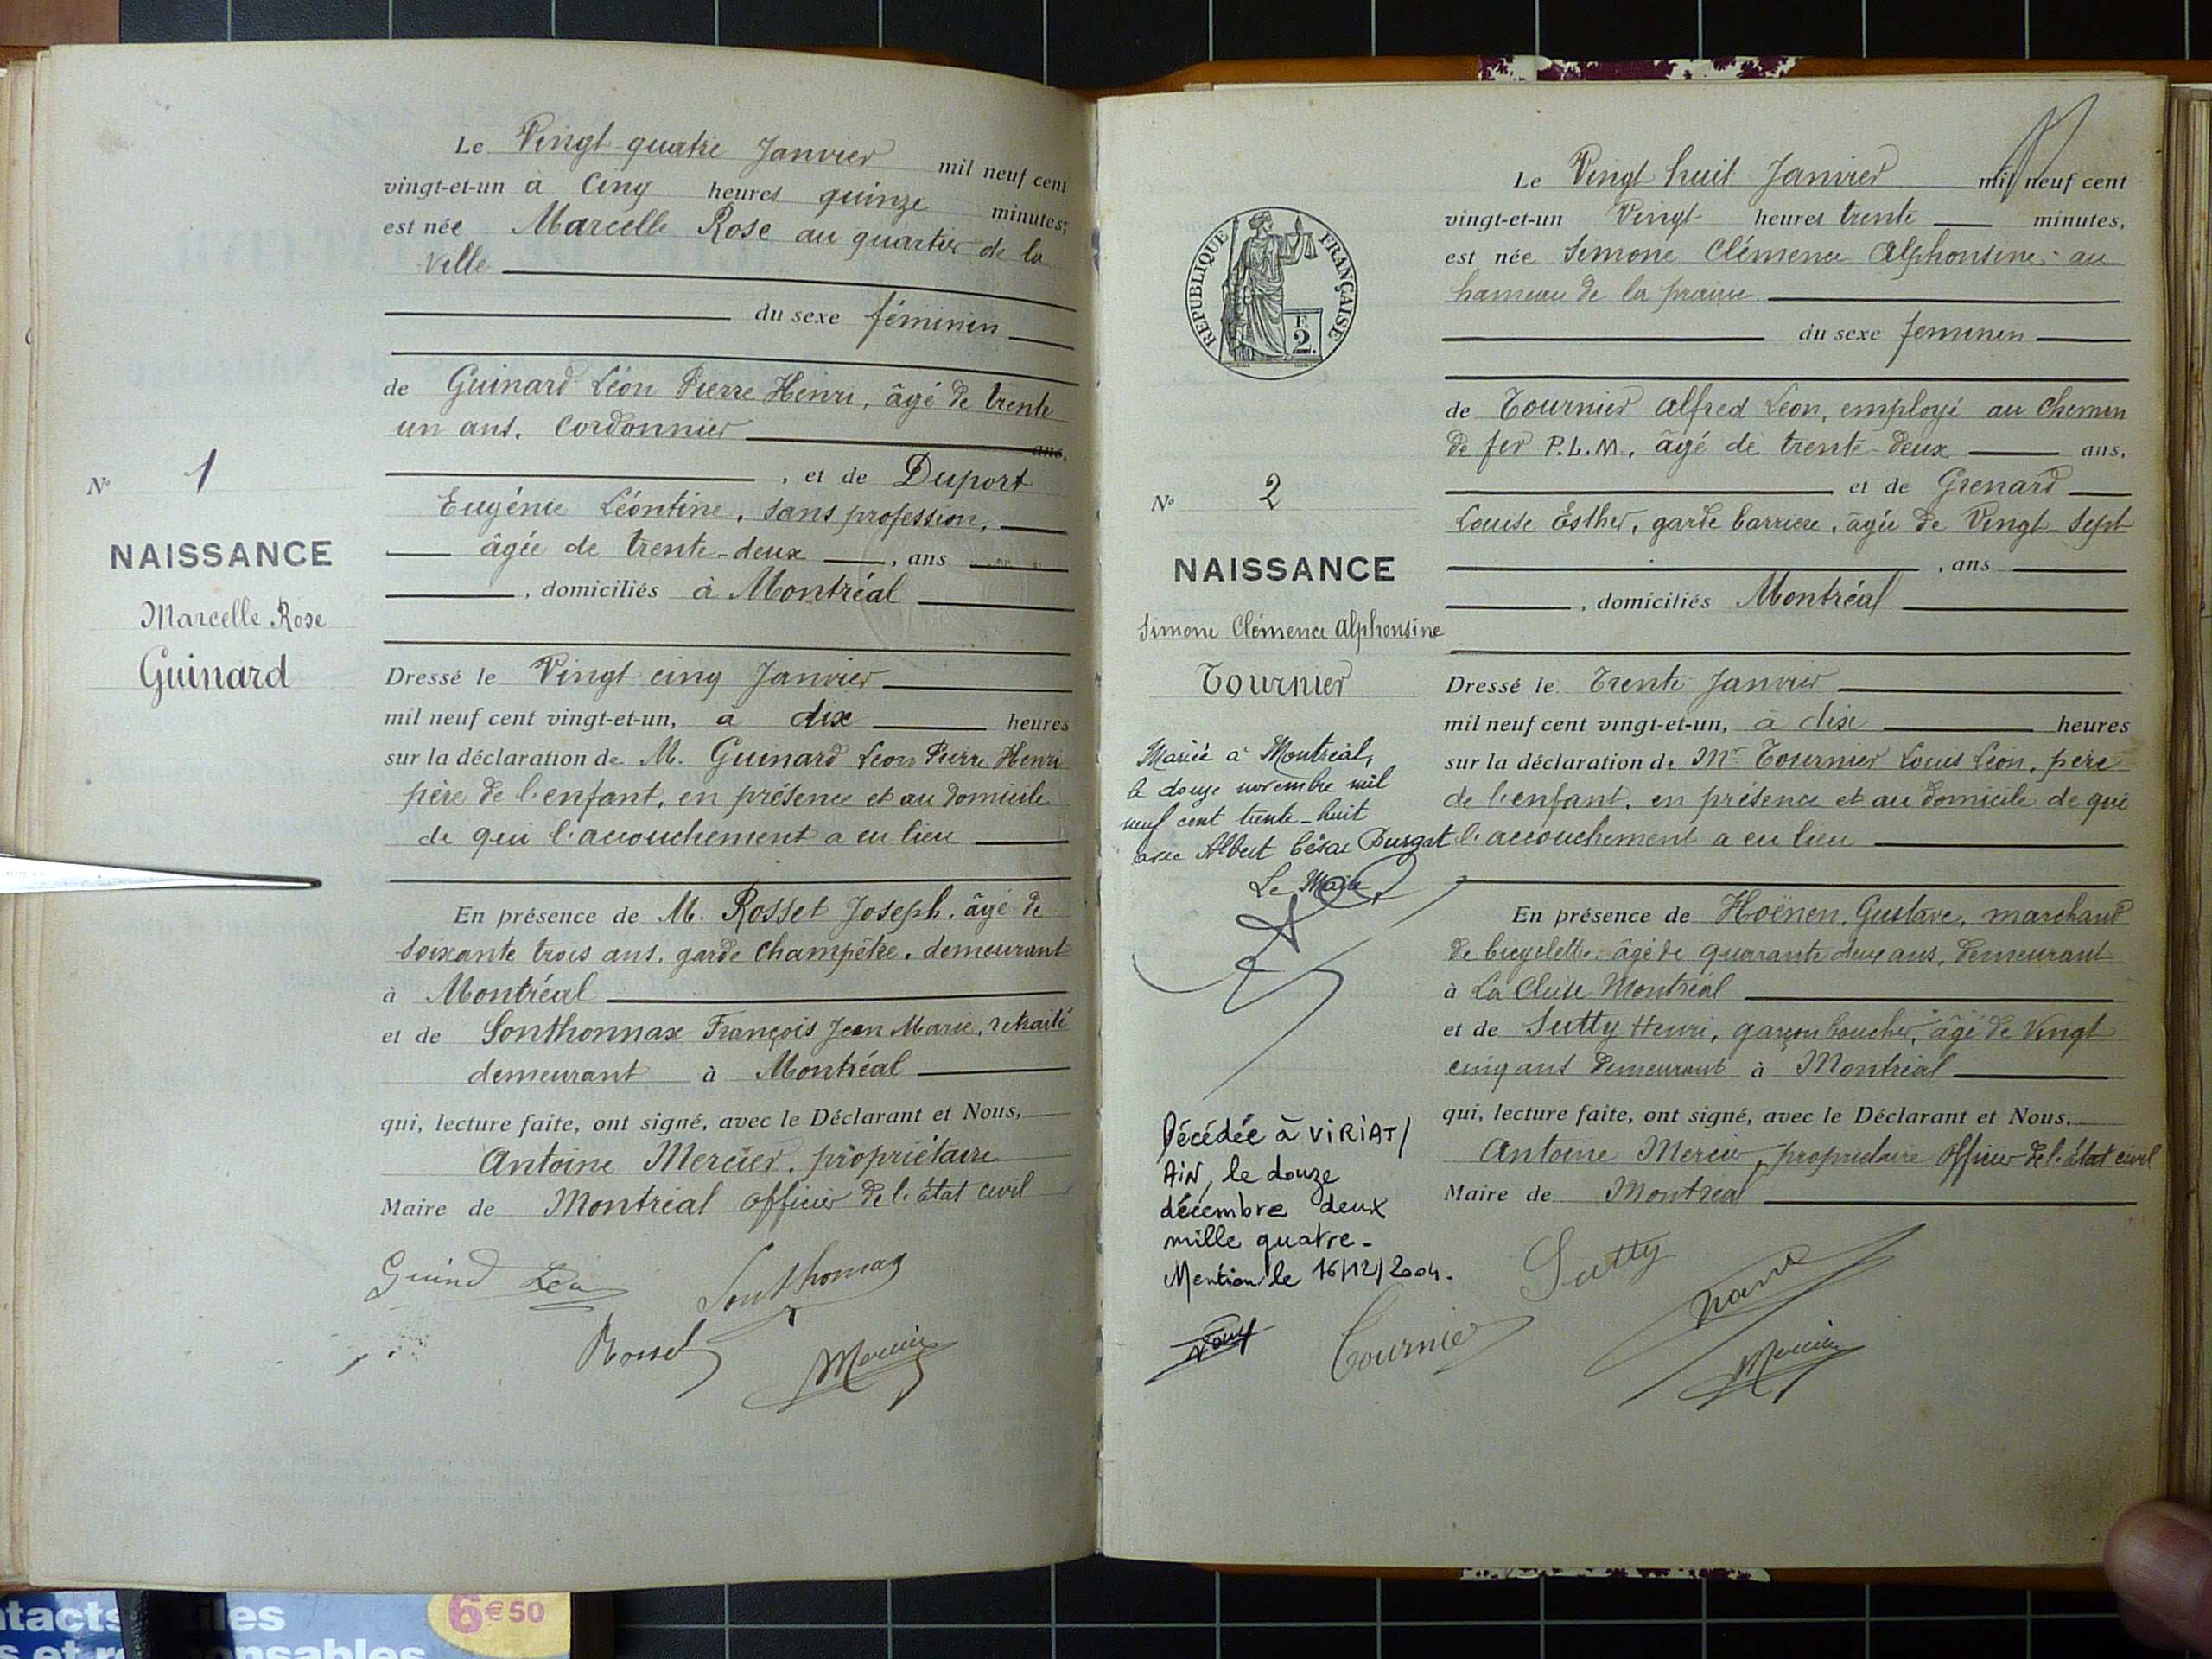 Le Vingt-quatre Janvier mil neuf cent
vingt-et-un à Cinq heures quinze minutes,
est née Marcelle Rose au quartier de la
Ville
du sexe féminin
de Guinard Léon Pierre Henri, âgé de trente
un ans, Cordonnier ans,
, et de Duport
Eugénie Léontine, sans profession,
âgée de trente-deux , ans
, domiciliés à Montréal
N° 1
NAISSANCE
Marcelle Rose
Guinard
Dressé le Vingt cinq Janvier
mil neuf cent vingt-et-un, à dix heures
sur la déclaration de M. Guinard Léon Pierre Henri
père de l'enfant, en présence et au domicile
de qui l'accouchement a eu lieu
En présence de M. Rosset Joseph, âgé de
soixante trois ans, garde Champêtre, demeurant
à Montréal
et de Sonthonnax François Jean Marie, retraité
demeurant à Montréal
qui, lecture faite, ont signé, avec le Déclarant et Nous,
Antoine Mercier, propriétaire
Maire de Montréal officier de l'État civil
Sonthonnax
Rosset
Mercier
Le Vingt huit Janvier mil neuf cent
vingt-et-un Vingt heures trente minutes,
est née Simone Clémence Alphonsine, au
hameau de la prairie
du sexe féminin
de Tournier Alfred Léon, employé au Chemin
de fer P.L.M, âgé de trente-deux ans,
et de Grenard
Louise Esther, garde barrière, âgée de Vingt-Sept
, ans
, domiciliés Montréal
REPUBLIQUE FRANÇAISE
F
2.
N° 2
NAISSANCE
Simone Clémence Alphonsine
Tournier
Mariée à Montréal,
le douze novembre mil
neuf cent trente-huit
avec Albert César Burgat
Le Maire,
Décédée à VIRIAT/
AIN, le douze
décembre deux
mille quatre-
Mention le 16/12/2004.
Dressé le Trente Janvier
mil neuf cent vingt-et-un, à dix heures
sur la déclaration de Mr Tournier Louis Léon, père
de l'enfant, en présence et au domicile de qui
l'accouchement a eu lieu
En présence de Hoënen, Gustave, marchand
de bicyclette, âgé de quarante deux ans, demeurant
à La Cluse Montréal
et de Sutty Henri, garçon boucher, âgé de Vingt
cinq ans demeurant à Montréal
qui, lecture faite, ont signé, avec le Déclarant et Nous,
Antoine Mercier, propriétaire Officier de l'état civil
Maire de Montréal
Sutty
Tournier
Mercier
6€50